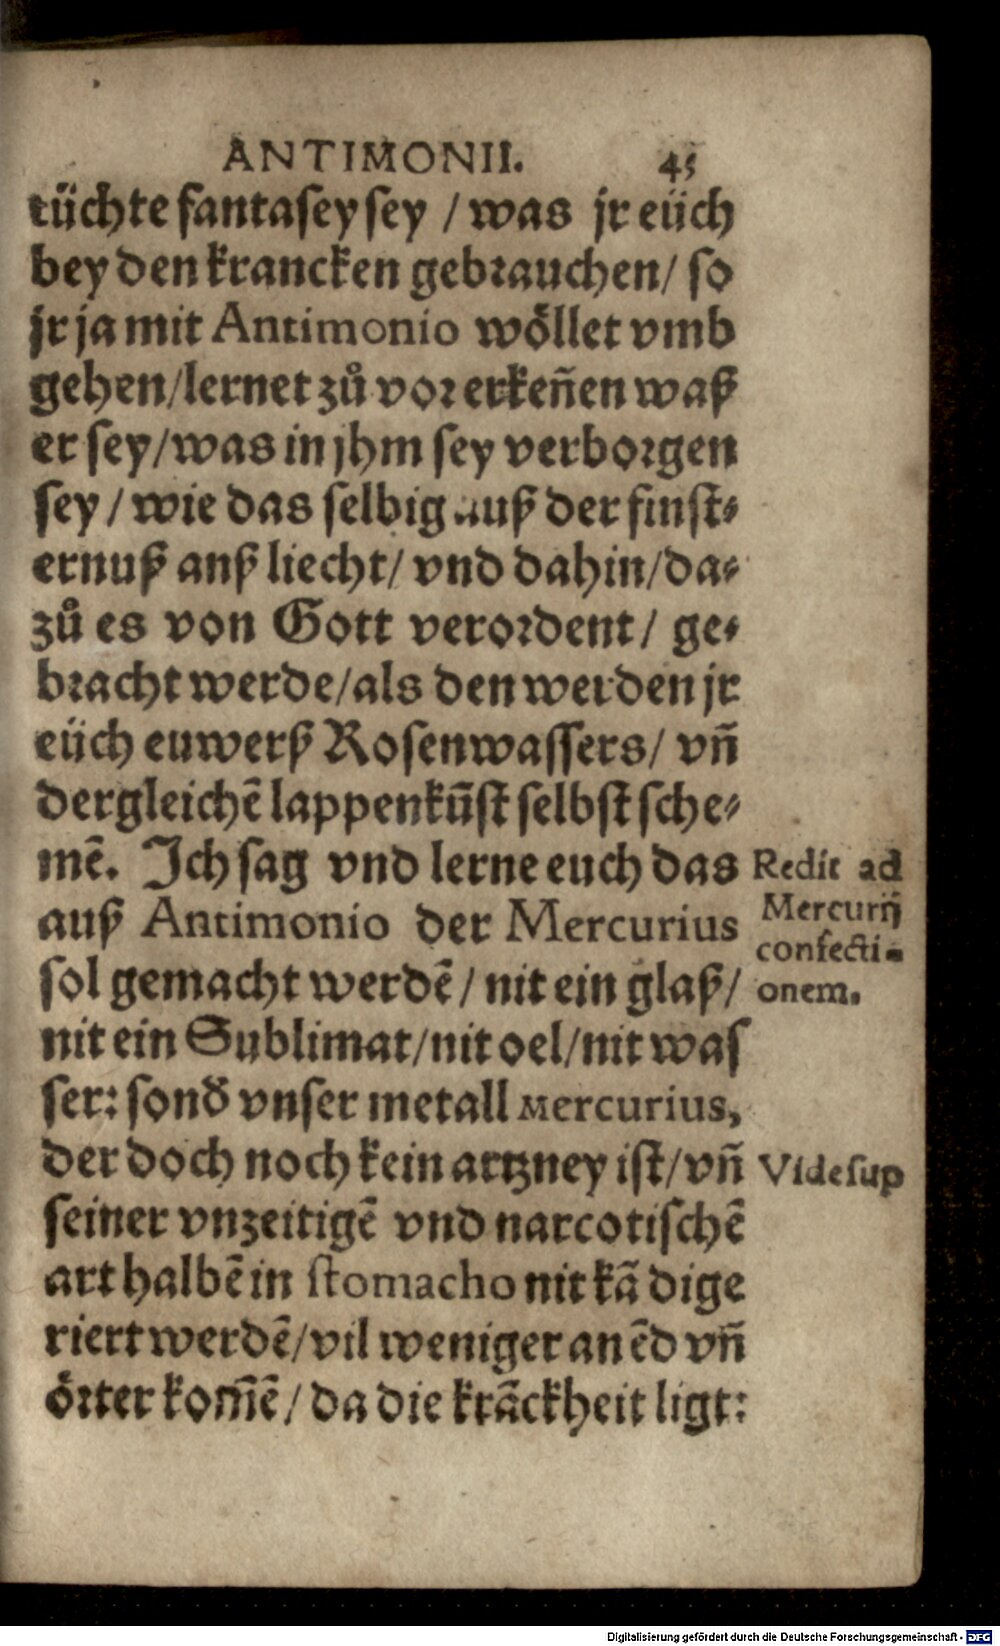 ANTIMONII. 45
tüchte fantasey sey / was jr eüch
bey den krancken gebrauchen / so
jr ja mit Antimonio wöllet vmb
gehen / lernet zů vor erkeñen waß
er sey / was in jhm sey verborgen
sey / wie das selbig auß der finst⸗
ernuß anß liecht / vnd dahin / da⸗
zů es von Gott verordent / ge⸗
bracht werde / als den werden jr
eüch euwerß Rosenwassers / vñ
dergleichẽ lappenkũst selbst sche⸗
mẽ. Ich sag vnd lerne euch das
auß Antimonio der Mercurius
sol gemacht werdẽ / nit ein glaß /
nit ein Sublimat / nit oel / nit was
ser: sonđ vnser metall Mercurius,
der doch noch kein artzney ist / vñ
seiner vnzeitigẽ vnd narcotischẽ
art halbẽ in stomacho nit kã dige
riert werdẽ / vil weniger an ẽd vñ
örter kom̃ẽ / da die krãckheit ligt:
Redit ad
Mercurij
confecti-
onem.
Vide sup
Digitalisierung gefördert durch die Deutsche Forschungsgemeinschaft - DFG